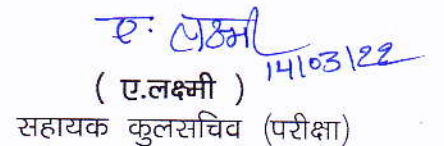 ए. लक्ष्मी
14/03/22
( ए.लक्ष्मी )
सहायक कुलसचिव (परीक्षा)